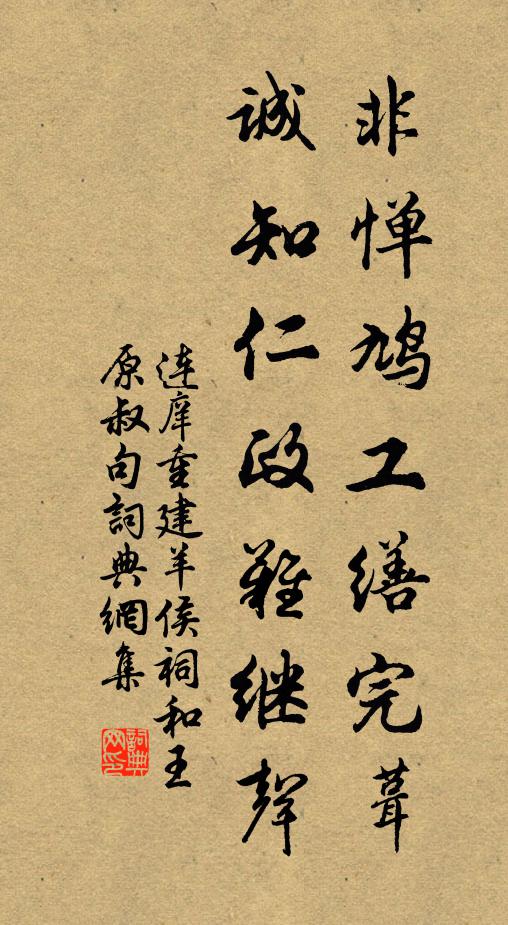 非惮鸠工缮完葺
诚知仁政难继声
连庠重建羊侯祠和王
原叔句词典网集
词典网印